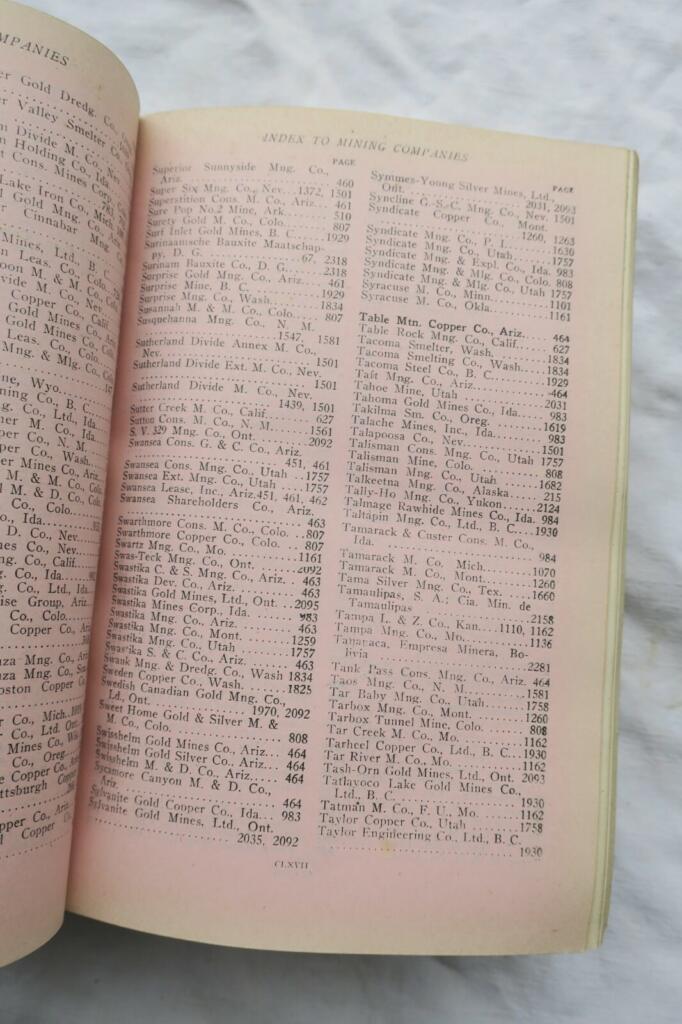 OMPANIES
er Gold Dredg. Co.,
er Valley Smelter Co.
m Divide M. Co., Nev.
n Holding Co., Ida.
t Cons. Mines Corp.,
Lake Iron Co., Mich.
d Gold Mng. Co.,
Cinnabar Mng. Co.
Mines, Ltd., B
n Leas. Co., Colo.
oon M. & M. Co.,
vide M. Co., Nev.
Copper Co., Calif.
Gold Mines Co.,
Gold Mines Co.
Leas. Co., Colo.
Mng. & Mlg. Co.,
ne, Wyo.
ning Co., B. C.
g. Co., Ltd., Ida.
er M. Co.,
pper Co., N. M.
per Co., Wash.
er Mines Co., Ariz.
& M. Co., Colo.
M. & D. Co.,
Co., Colo.
o., Ida.
D. Co., Nev.
n Co., Nev.
ng. Co., Calif.
g. Co., Ida.
g. Co., Ltd.,
ise Group, Ariz.
Co., Colo.
Copper Co.,
aza Mng. Co.,
za M. Co.,
oston Copper C
r Co., Mich.
Co., Ltd. Ont.
Mines Co., Wis.
Co., Oreg.
Copper Co.,
ttsburgh Copper
pper Co., Ariz.
l Copper Co.,
INDEX TO MINING COMPANIES
PAGE
Superior Sunnyside Mng. Co.,
Ariz. 460
Super Six Mng. Co., Nev. 1372, 1501
Superstition Cons. M. Co., Ariz. 461
Sure Pop No.2 Mine, Ark. 510
Surety Gold M. Co., Colo. 807
Surf Inlet Gold Mines, B. C. 1929
Surinaamsche Bauxite Maatschap-
py, D. G. 67, 2318
Surinam Bauxite Co., D. G. 2318
Surprise Gold Mng. Co., Ariz. 461
Surprise Mine, B. C. 1929
Surprise Mng. Co., Wash. 1834
Susannah M. & M. Co., Colo. 807
Susquehanna Mng. Co., N. M.
1547, 1581
Sutherland Divide Annex M. Co.,
Nev. 1501
Sutherland Divide Ext. M. Co., Nev.
1501
Sutherland Divide M. Co., Nev.
1439, 1501
Sutter Creek M. Co., Calif. 627
Sutton Cons. M. Co., N. M. 1561
S. V. 329 Mng. Co., Ont. 2092
Swansea Cons. G. & C. Co., Ariz.
451, 461
Swansea Cons. Mng. Co., Utah 1757
Swansea Ext. Mng. Co., Utah 1757
Swansea Lease, Inc., Ariz. 451, 461, 462
Swansea Shareholders Co., Ariz.
463
Swarthmore Cons. M. Co., Colo. 807
Swarthmore Copper Co., Colo. 807
Swartz Mng. Co., Mo. 1161
Swas-Teck Mng. Co., Ont. 2092
Swastika C. & S. Mng. Co., Ariz. 463
Swastika Dev. Co., Ariz. 463
Swastika Gold Mines, Ltd., Ont. 2095
Swastika Mines Corp., Ida. 983
Swastika Mng. Co., Ariz. 463
Swastika Mng. Co., Mont. 1259
Swastika Mng. Co., Utah 1757
Swastika S. & C. Co., Ariz. 463
Swauk Mng. & Dredg. Co., Wash 1834
Sweden Copper Co., Wash. 1825
Swedish Canadian Gold Mng. Co.,
Ld., Ont. 1970, 2092
Sweet Home Gold & Silver M. &
M. Co., Colo. 808
Swisshelm Gold Mines Co., Ariz. 464
Swisshelm Gold Silver Co., Ariz. 464
Swisshelm M. & D. Co., Ariz. 464
Sycamore Canyon M. & D. Co.,
Ariz. 464
Sylvanite Gold Copper Co., Ida. 983
Sylvanite Gold Mines, Ltd., Ont.
2035, 2092
PAGE
Symmes-Young Silver Mines, Ltd.,
Ont. 2031, 2093
Syncline G.-S.-C. Mng. Co., Nev. 1501
Syndicate Copper Co., Mont.
1260, 1263
Syndicate Mng. Co., P. I. 1630
Syndicate Mng. Co., Utah 1757
Syndicate Mng. & Expl. Co., Ida. 983
Syndicate Mng. & Mlg. Co., Colo. 808
Syndicate Mng. & Mlg. Co., Utah 1757
Syracuse M. Co., Minn. 1101
Syracuse M. Co., Okla. 1161
Table Mtn. Copper Co., Ariz. 464
Table Rock Mng. Co., Calif. 627
Tacoma Smelter, Wash. 1834
Tacoma Smelting Co., Wash. 1834
Tacoma Steel Co., B. C. 1929
Taft Mng. Co., Ariz. 464
Tahoe Mine, Utah 2031
Tahoma Gold Mines Co., Ida. 983
Takilma Sm. Co., Oreg. 1619
Talache Mines, Inc., Ida. 983
Talapoosa Co., Nev. 1501
Talisman Cons. Mng. Co., Utah 1757
Talisman Mine, Colo. 808
Talisman Mng. Co., Utah 1682
Talkeetna Mng. Co., Alaska 215
Tally-Ho Mng. Co., Yukon 2124
Talmage Rawhide Mines Co., Ida. 984
Taltapin Mng. Co., Ltd., B. C. 1930
Tamarack & Custer Cons. M. Co.,
Ida. 984
Tamarack M. Co. Mich. 1070
Tamarack M. Co., Mont. 1260
Tama Silver Mng. Co., Tex. 1660
Tamaulipas, S. A.; Cia. Min. de
Tamaulipas 2158
Tampa L. & Z. Co., Kan. 1110, 1162
Tampa Mng. Co., Mo. 1136
Tanaraca, Empresa Minera, Bo-
livia 2281
Tank Pass Cons. Mng. Co., Ariz. 464
Taos Mng. Co., N. M. 1581
Tar Baby Mng. Co., Utah 1758
Tarbox Mng. Co., Mont. 1260
Tarbox Tunnel Mine, Colo. 808
Tar Creek M. Co., Mo. 1162
Tarheel Copper Co., Ltd., B. C. 1930
Tar River M. Co., Mo. 1162
Tash-Orn Gold Mines, Ltd., Ont. 2093
Tatlayoco Lake Gold Mines Co.,
Ltd., B. C. 1930
Tatman M. Co., F. U., Mo. 1162
Taylor Copper Co., Utah 1758
Taylor Engineering Co., Ltd., B. C.
1930
CLXVII